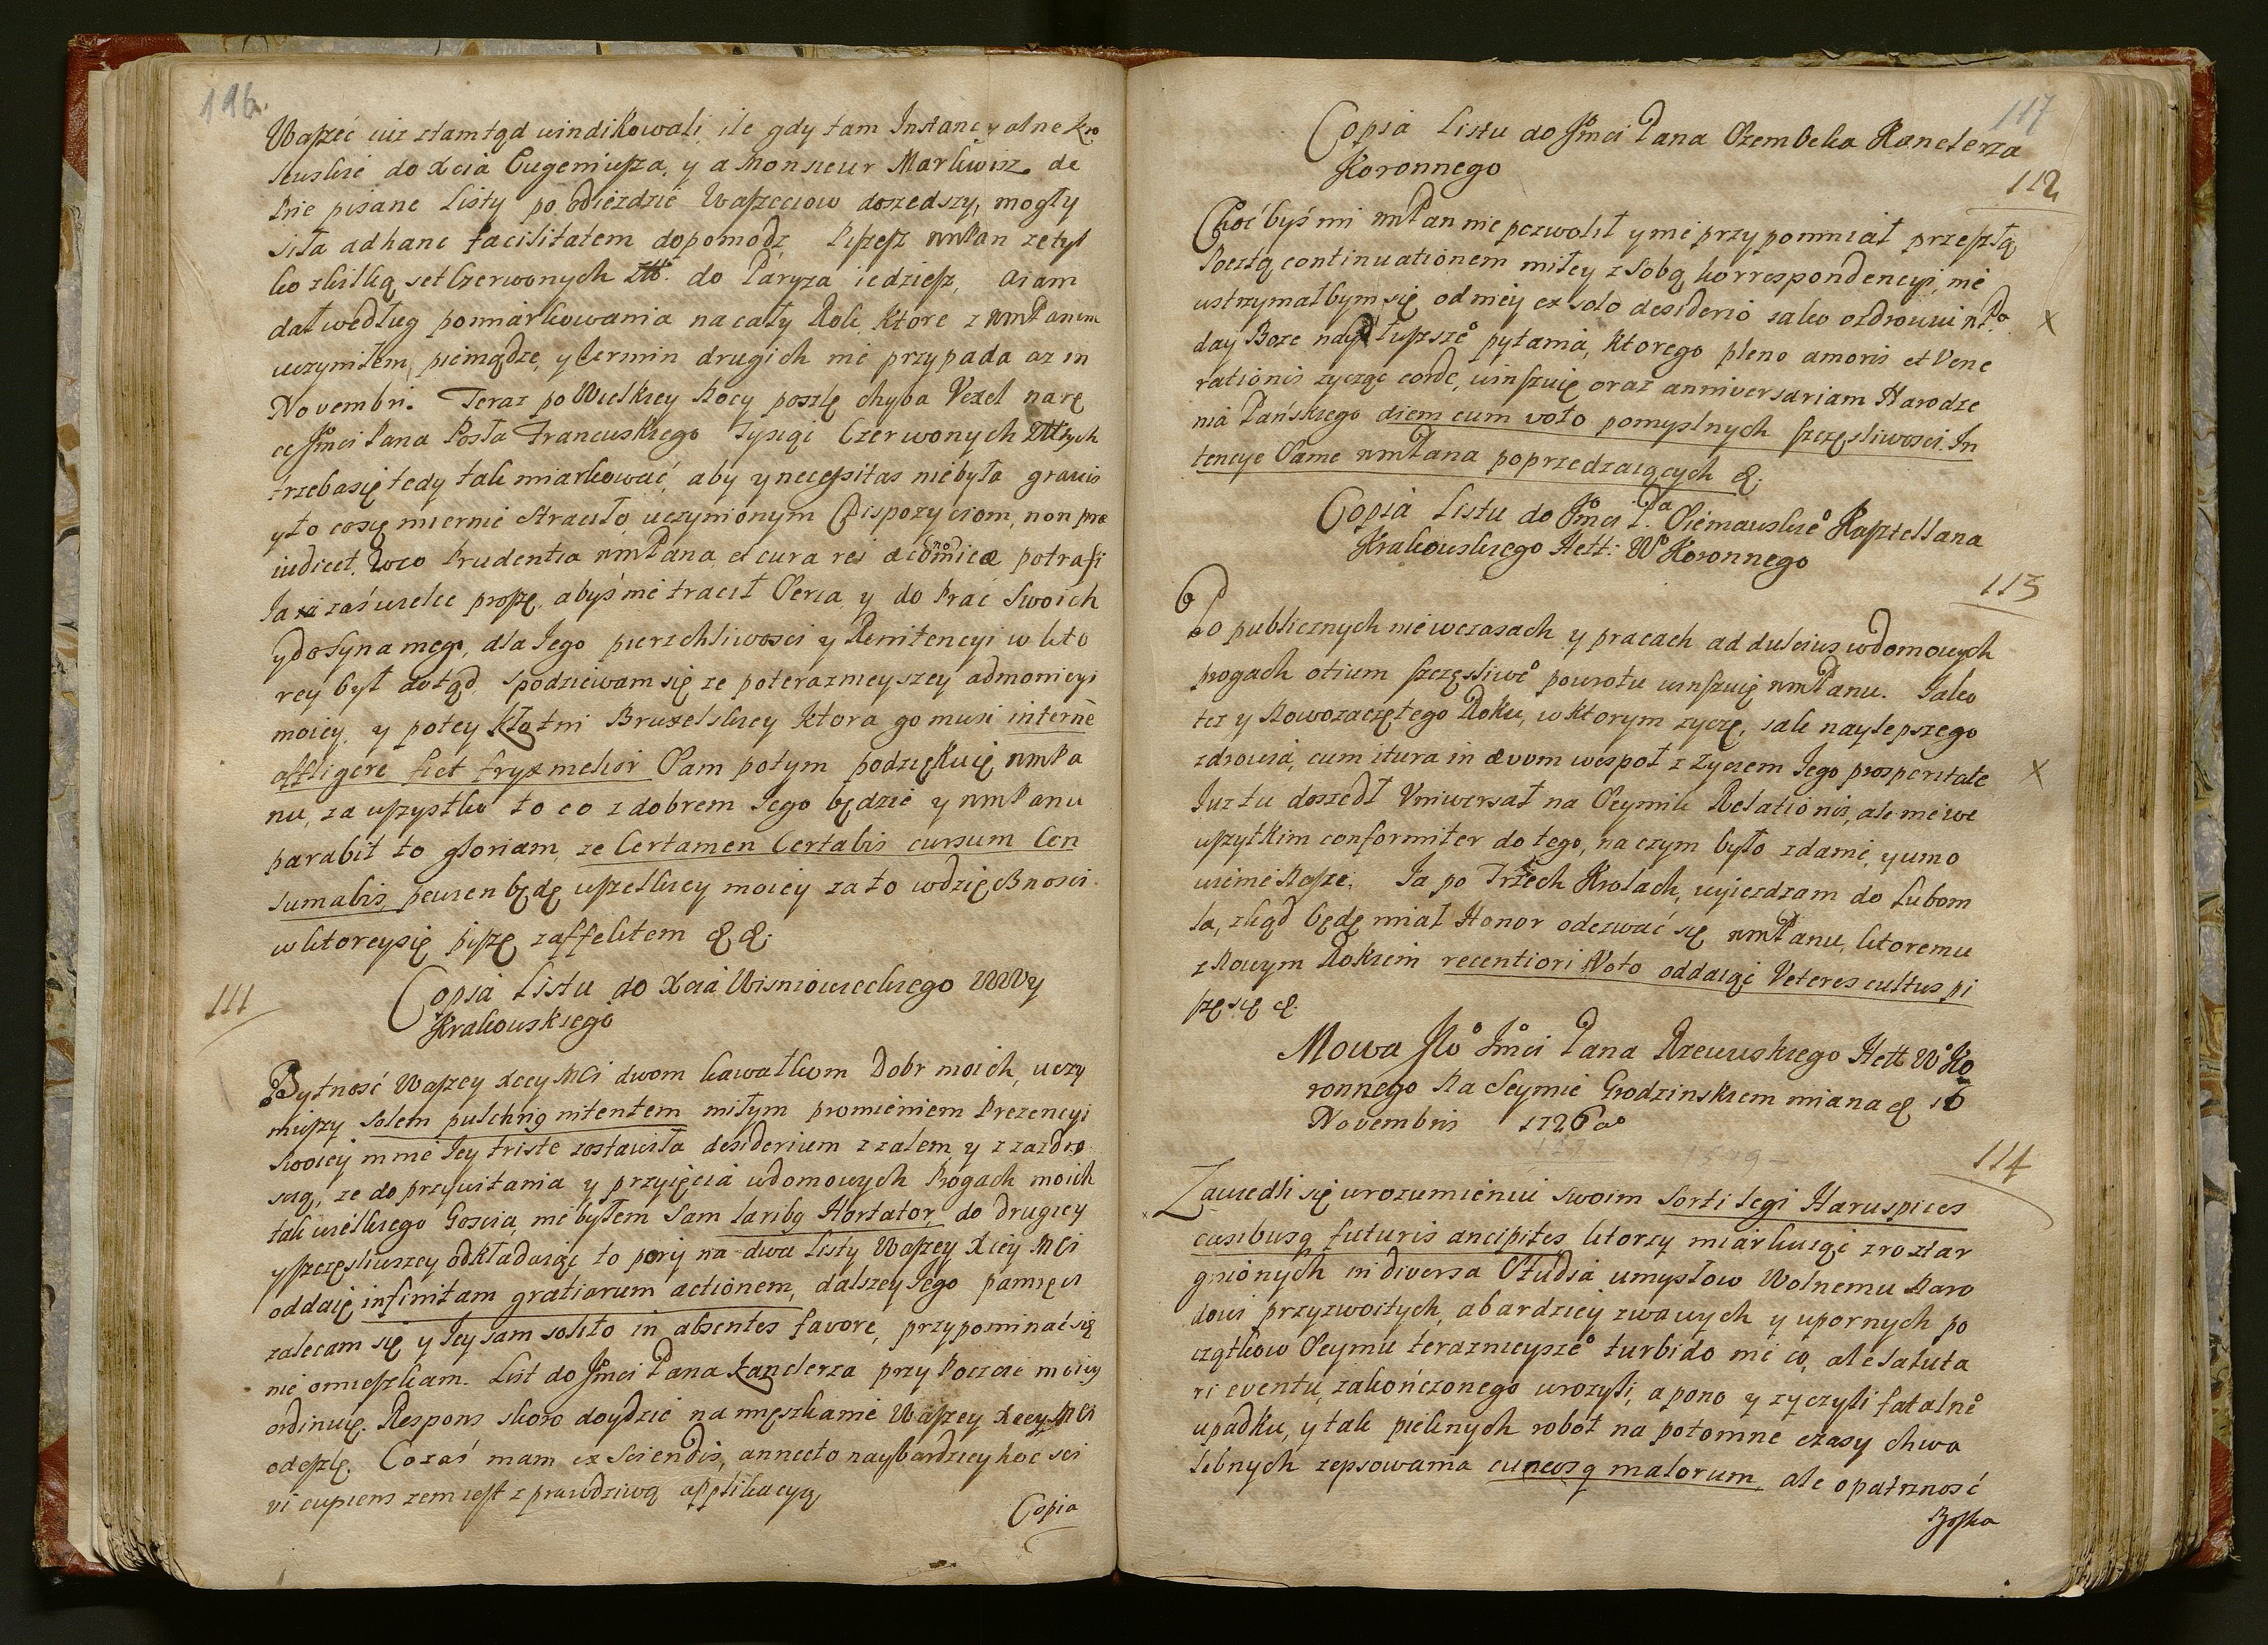 116.
Waszeć iuż ztamtąd windikowali, ile gdy tam Instancyalne Kro
lewskie do Xcia Eugeniusza, y a Monsieur Markwisz de
Prie pisane Listy po odieździe Waszeciow doszedszy, mogły
siła ad hanc facilitatem dopomodz. Piszesz WMPan że tyl
ko z kilką set Czerwonych Złł. do Paryża iedziesz, a iam
dał według pomiarkowania na cały Rok, ktore z WMPanem
uczyniłem, pieniądze, y termin drugich nie przypada aż in
Novembri. Teraz po Wielkiey Nocy poszlę chyba Vexel na rę
ce Jmci Pana Posła Francuskiego Tysiąi Czerwonych Złłtych
trzeba się tedy tak miarkować, aby y necessitas nie była gravis
y to co się miernie straciło uczynionym Dispozyciom, non præ
iudicet. W co Prudentia WMPana et cura rei æconomicæ potrafi
Ja zaś wielce proszę, abyś nie tracił Serca y do Prac swoich
y do Syna mego, dla Jego pierzchliwosci y Renitencyi w kto
rey był dotąd, spodziewam się że po terazmieyszey admonicyi
moiey, y po tey kłotni Bruxelskiey ktora go musi internè
affligere fiet fryx melior Sam potym podziękuię WMPa
nu, za wszystko to co z dobrem Jego będzie y WMPanu
parabit to gloriam, ze Certamen Certabis cursum Con
sumabis, pewien będę wszelkiey moiey za to wdzięcznosci
w ktorey się piszę z affektem &. &.
111
Copia Listu do Xcia Wisniowieckiego WWdy
Krakowskiego
Bytność Waszey Xcey Mci dwom kawałkom Dobr moich, uczy
niwszy Solem pulchriq nitentem miłym promieniem Prezencyi
swoiey mnie Jey triste zostawiła desiderium z zalem, y z zazdro
scią, że do przywitania y przyięcia w domowych Progach moich
tak wielkiego Goscia, nie byłem Sam laribq Hortator, do drugiey
y szczęsliwszey odkładaiąc to pory na dwa Listy Waszey Xciey Mci
oddaię infinitam gratiarum actionem, dalszey Jego pamięci
zalecam się y Jey sam solito in absentes favore, przypominać się
nie omieszkam. List do Jmci Pana Kanclerza przy Poczcie moiey
ordinuię. Respons skoro doydzie na mięszkanie Waszey Xcey Mci
odeszlę. Co zaś mam ex Sciendis, annecto naybardziey hoc sci
ri cupiens żem iest z prawdziwą applikacyą
Copia
117
Copia Listu do Jmci Pana Szembeka Kanclerza
Koronnego
112
Choć byś mi WMPan nie pozwolił y nie przypomniał przeszłą
Pocztą continuationem miłey z Sobą korrespondencyi, nie
ustrzymałbym się od niey ex solo desiderio iako o zdrowiu WPa
day Boże naydłuższo pytania, ktorego pleno amoris et Vene
rationis zycząc corde, winszuię oraz anniversariam Narodze
nia Pańskiego diem cum voto pomyslnych szczęsliwosci. In
tencye Same WMPana poprzedzaiących &.
x
Copia Listu do Jmci Pa Sieniawskiego Kasztellana
Krakowskiego Hett: Wo Koronnego
113
Po publicznych niewczasach y pracach ad dulcius w domowych
progach otium szczęsliwego powrotu winszuię WMPanu. Jako
tez y Nowozaczętego Roku, w ktorym zyczę, iak naylepszego
zdrowia, cum itura in ævom wespoł z Zyciem Jego prosperitate
Już tu doszedł Vniwersał na Seymik Relationis, ale nie we
wszytkim conformiter do tego, na czym było zdanie, y umo
wienie Nasze. Ja po Trzech Krolach, wyiezdzam do Lubom
la, zkąd będę miał Honor odezwać się WMPanu, ktoremu
z Nowym Rokiem recentiori Voto oddaiąc Veteres cultus pi
szę się &.
x
Mowa Jło Jmci Pana Rzewuskiego Hett Wo Ko
ronnego Na Seymie Grodzinskiem miana & 16
Novembris 1726 ao
114
Zawiedli się w rozumieniu swoim Sorti legi Haruspices
casibusq futuris ancipites ktorzy miarkuiąc z roztar
gnionych in diversa Studia umysłow Wolnemu Naro
dowi przyzwoitych, a bardziey zwawych y upornych po
czątkow Seymu terazmieyszego turbido nie co, ale Saluta
ri eventu, zakończonego wrozyli, a pono y zyczyli fatalnego
upadku, y tak pieknych robot na potomne czasy chwa
lebnych zepsowania cuneosq malorum, ale opatrznosć
Boska